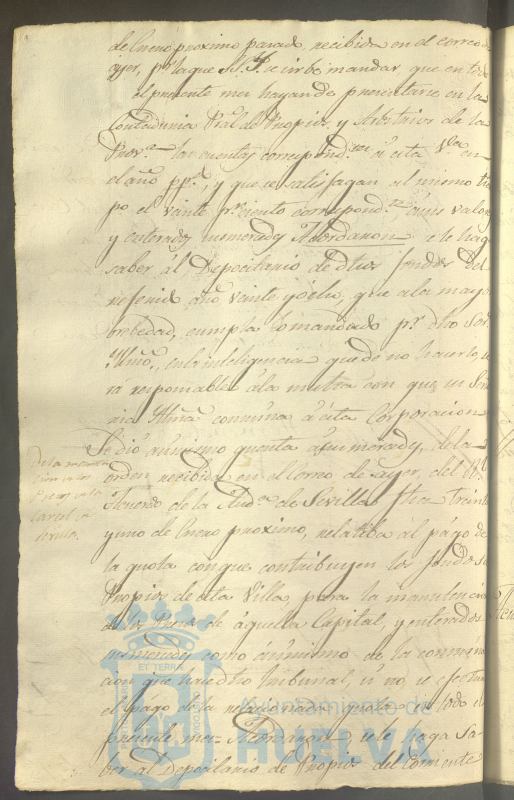 de Enero proximo pasado, recibida en el correo de
ayer, pr. la que S.S.Y. se sirbe mandar, que en todo
el presente mes hayan de presentarse en la
Contaduria Pral. de Propios y Arbitrios de la
Prova. las cuentas correspondtes. á esta Va. en
el año pp.º, y que se satisfagan al mismo tiem
po el veinte pr. ciento correspondte. á sus valores
y enterados sus mercedes Acordaron se le haga
saber al Depocitario de dhos fondos del
referido año veinte y ocho, que a la mayor
brebedad, cumpla lo mandado pr. dho Sor.
Yltmo., en la inteligencia que de no hacerlo, se
rá responsable á la multa con que su Seño
ria Yltma. conmina á esta Corporacion
Se dió asimismo quenta á sus mercedes, de la
orden recibida en el Correo de ayer, del
de la Auda. de Sevilla fha Treinta
y uno de Enero proximo, relatiba al págo de
la quota con que contribuyen los fondos de
Propios de esta Villa para la manutencion
de los Presos de aquella Capital, y enterados
sus mercedes como asimismo de la conmina
cion que hace dho Tribunal, si no se efectua
el págo de la relacionada quota en todo el
presente mes: Acordaron se le haga sa
ber al Depocitario de Propios del corriente
De la manuten
cion de los
Presos de la
carcel de
Sevilla.
ET TERRAE
Ayuntamiento de
HUELVA